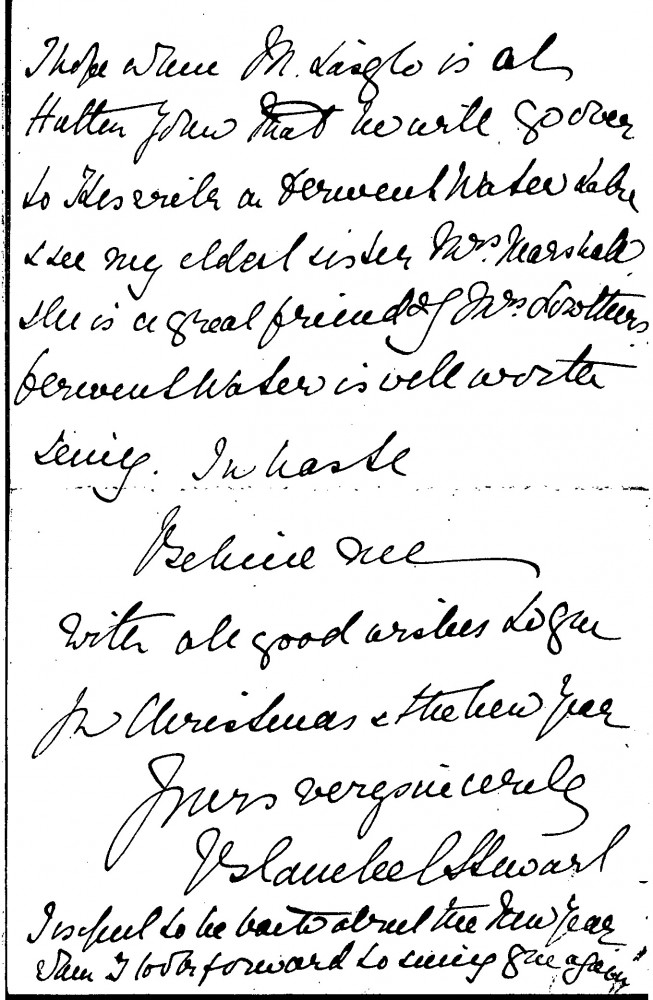 I hope when M. László is at
Hutton John that he will go over
to Keswick on Derwent Water Lake
& see my eldest sister Mrs. Marshall
She is a great friend of Mrs. Lowthers.
Derwent Water is well worth
seeing. In haste
Believe me
With all good wishes to you
for Christmas & the New Year
Yours very sincerely
Blanche Stewart
I expect to be back about the New Year
when I look forward to seeing you again